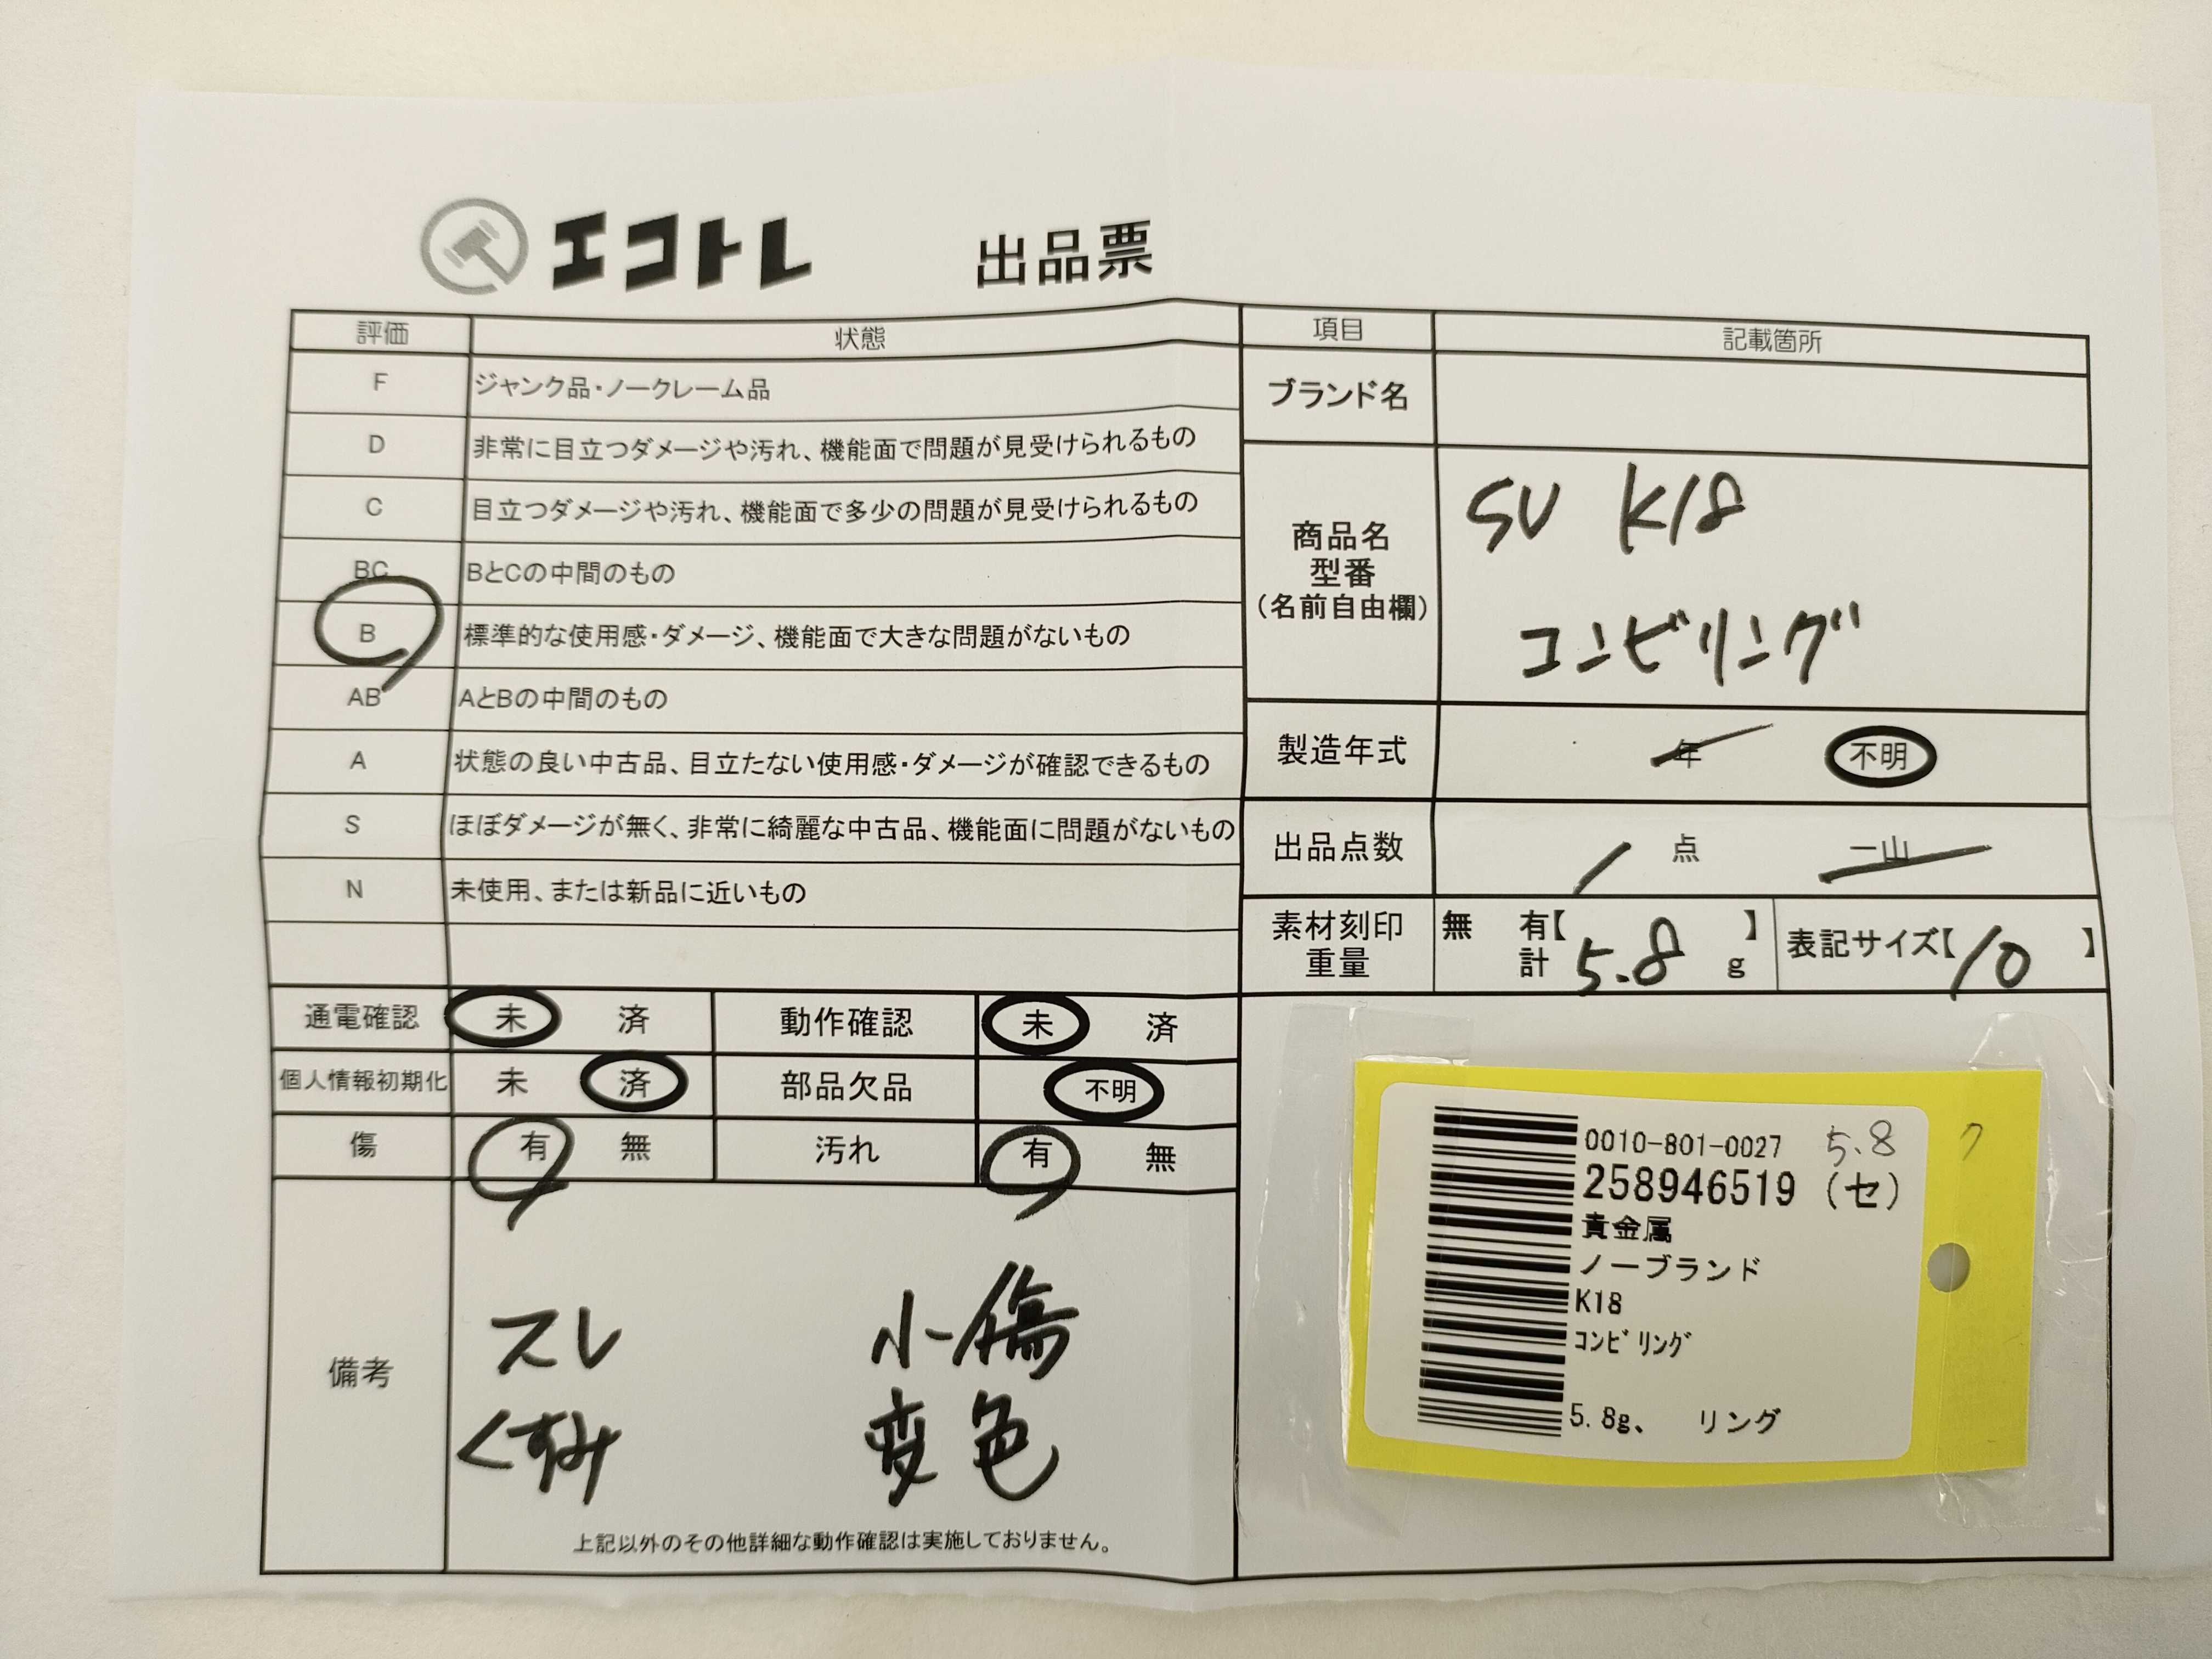 エコトレ 出品票
評価 状態
F ジャンク品・ノークレーム品
D 非常に目立つダメージや汚れ、機能面で問題が見受けられるもの
C 目立つダメージや汚れ、機能面で多少の問題が見受けられるもの
BC BとCの中間のもの
B 標準的な使用感・ダメージ、機能面で大きな問題がないもの
AB AとBの中間のもの
A 状態の良い中古品、目立たない使用感・ダメージが確認できるもの
S ほぼダメージが無く、非常に綺麗な中古品、機能面に問題がないもの
N 未使用、または新品に近いもの
通電確認 未 済 動作確認 未 済
個人情報初期化 未 済 部品欠品 不明
傷 有 無 汚れ 有 無
備考
スレ 小傷
くすみ 変色
上記以外のその他詳細な動作確認は実施しておりません。
項目 記載箇所
ブランド名
商品名
型番
(名前自由欄)
SV K18
コンビリング
製造年式 年 不明
出品点数 1 点 一山
素材刻印 無 有【 】
重量 計 5.8 g
表記サイズ【10 】
0010-801-0027 5.8
258946519 (セ)
貴金属
ノーブランド
K18
ｺﾝﾋﾞﾘﾝｸﾞ
5.8g、 リング